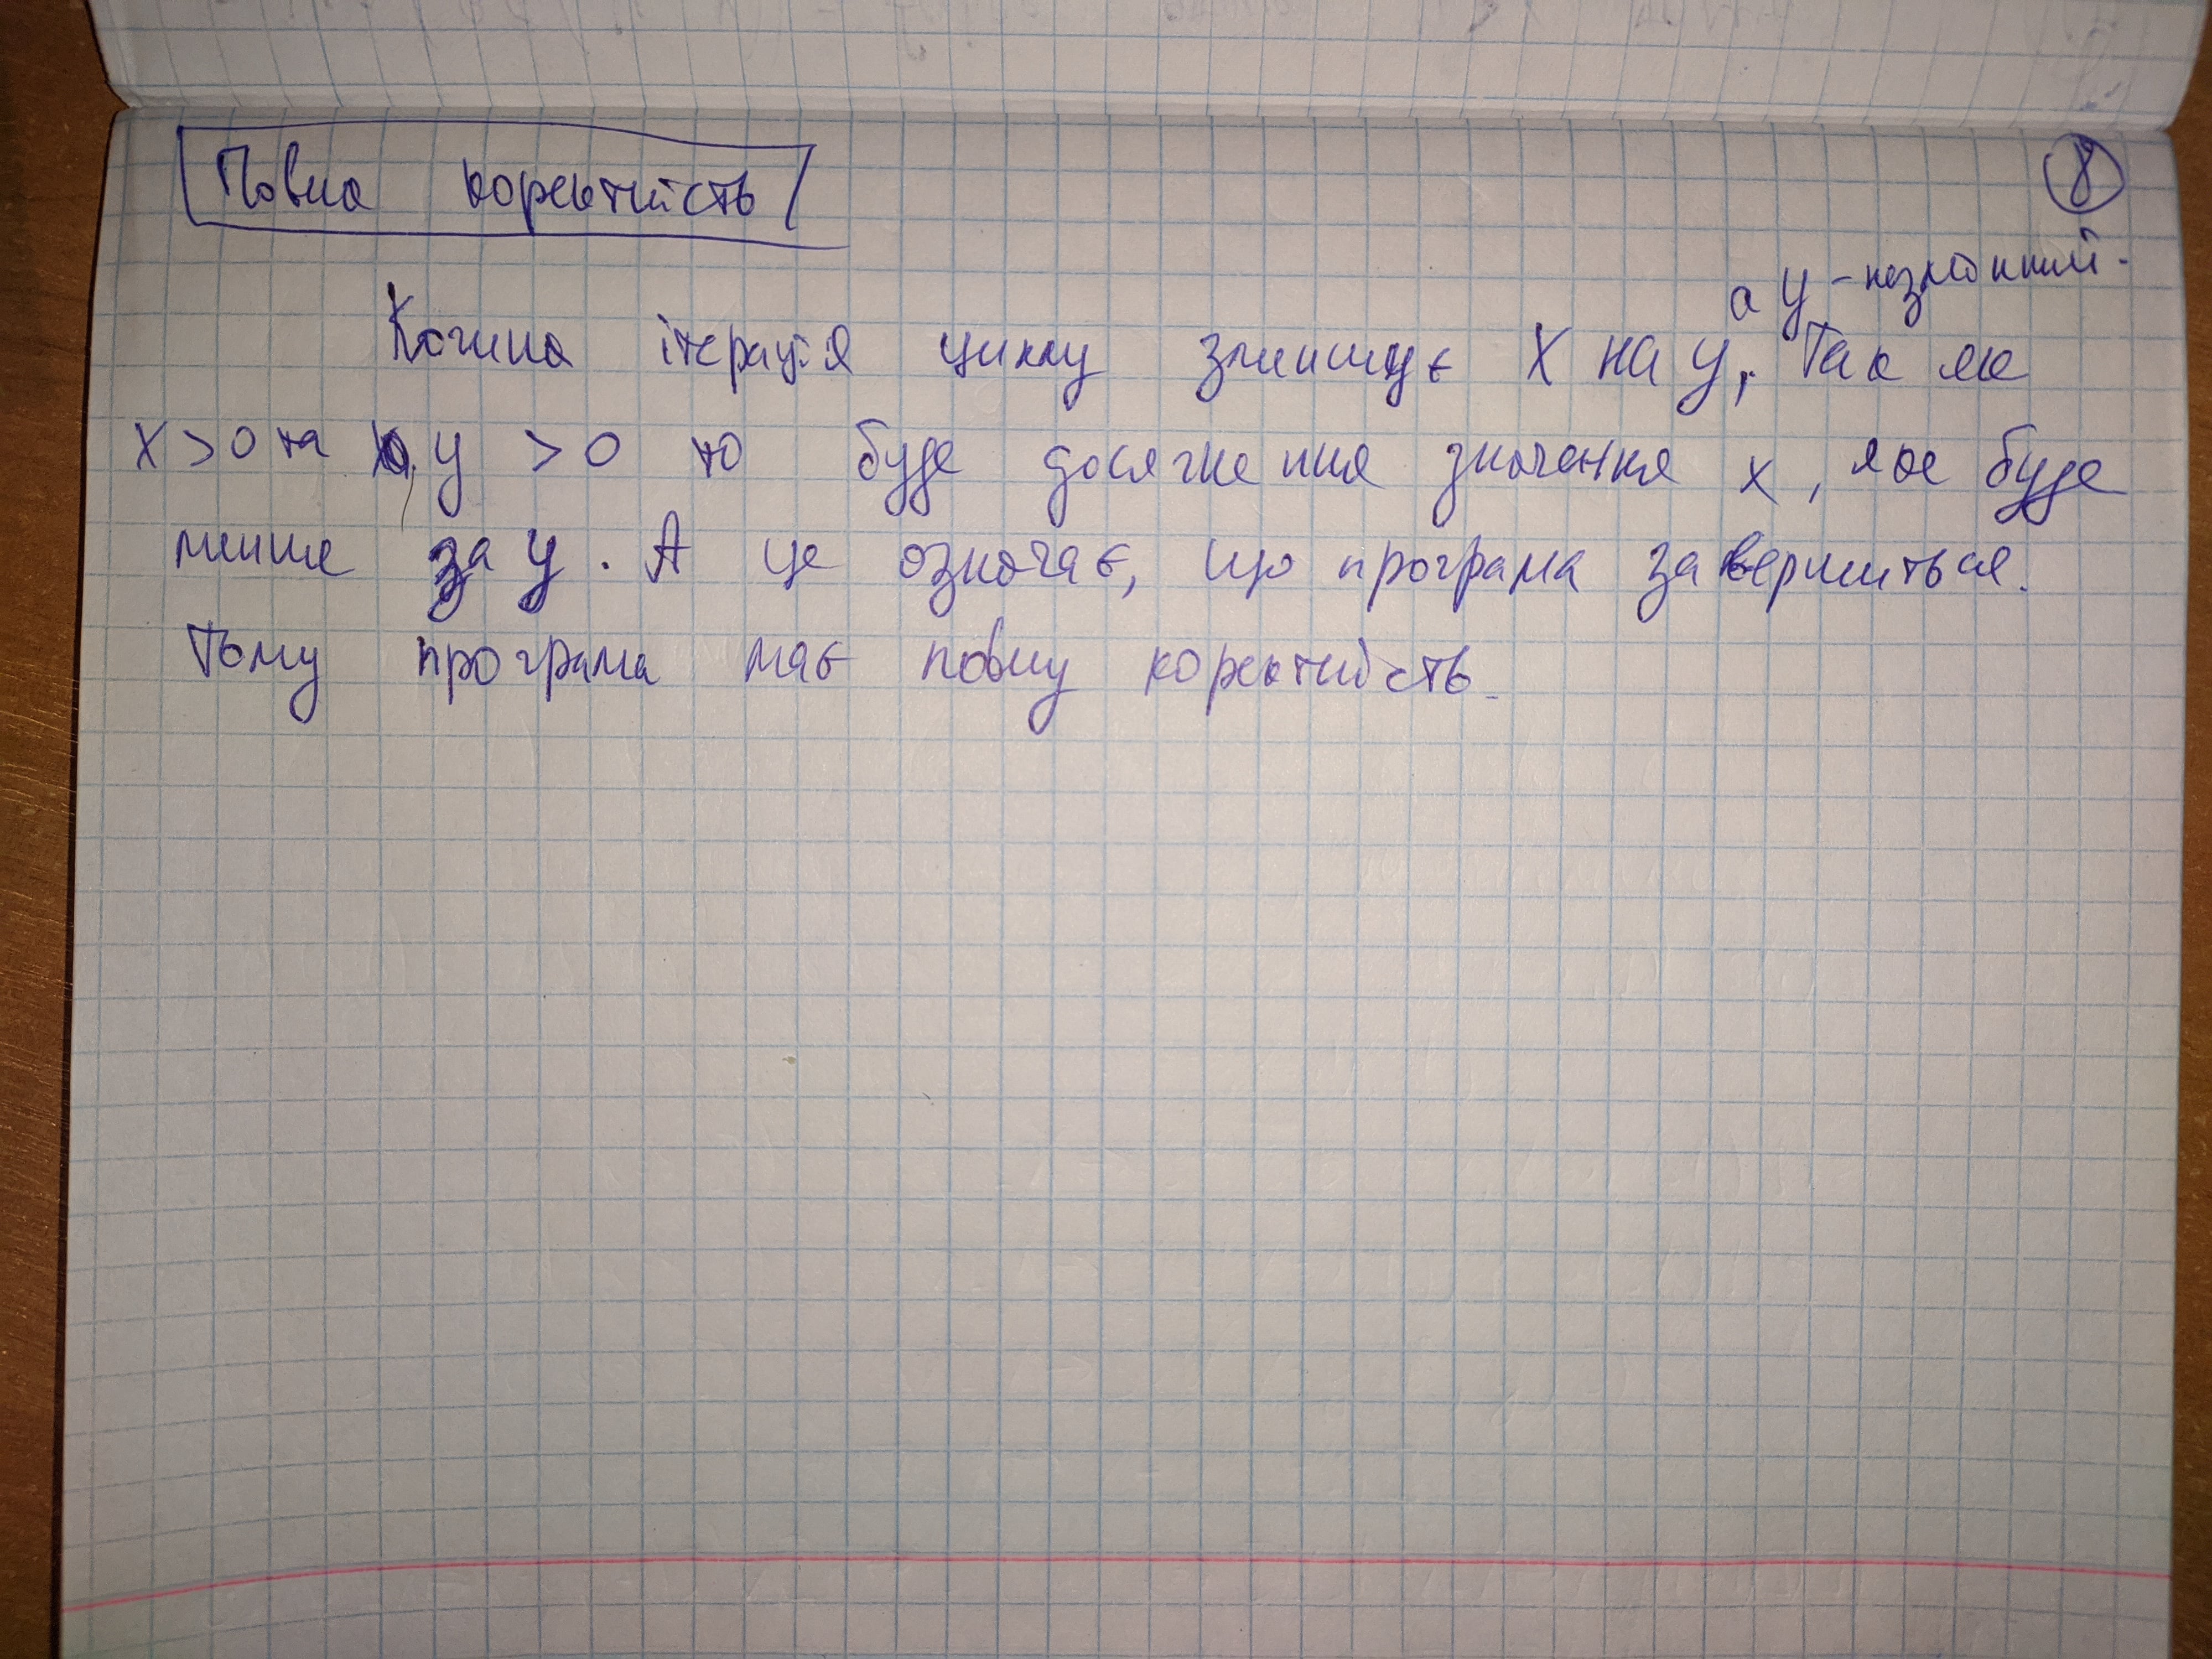 Повна коректність
8
а y - незмінний.
Кожна ітерація циклу зменшує X на y, Так як
X > 0 та y > 0 то буде досягнення значення x, яке буде
менше за y. А це означає, що програма завершиться.
Тому програма має повну коректність.